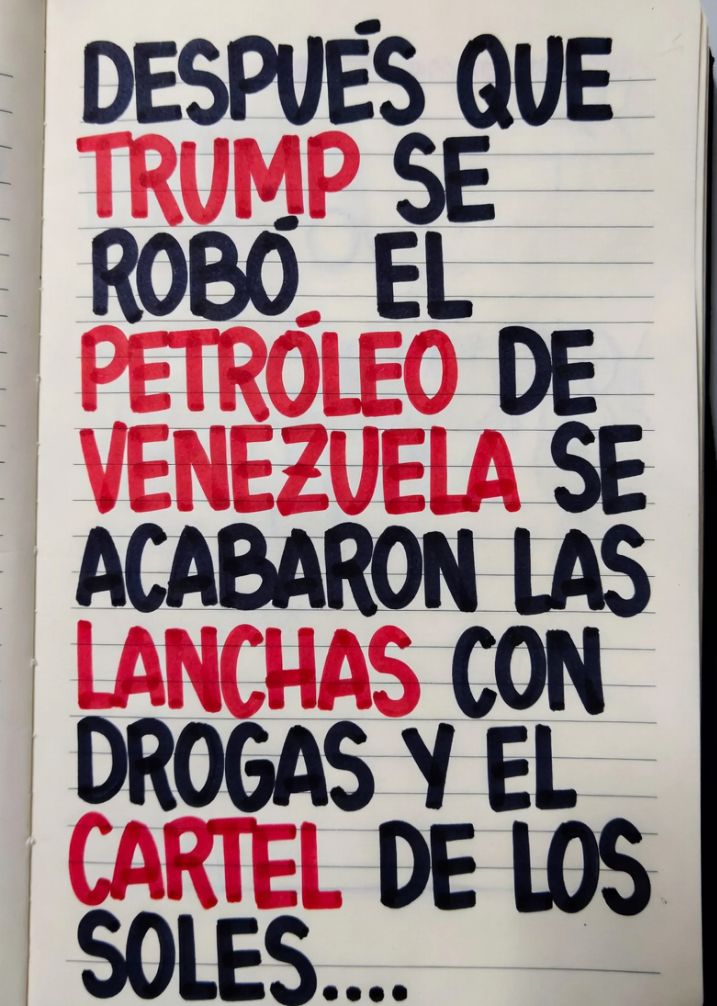 DESPUÉS QUE
TRUMP SE
ROBÓ EL
PETRÓLEO DE
VENEZUELA SE
ACABARON LAS
LANCHAS CON
DROGAS Y EL
CARTEL DE LOS
SOLES....